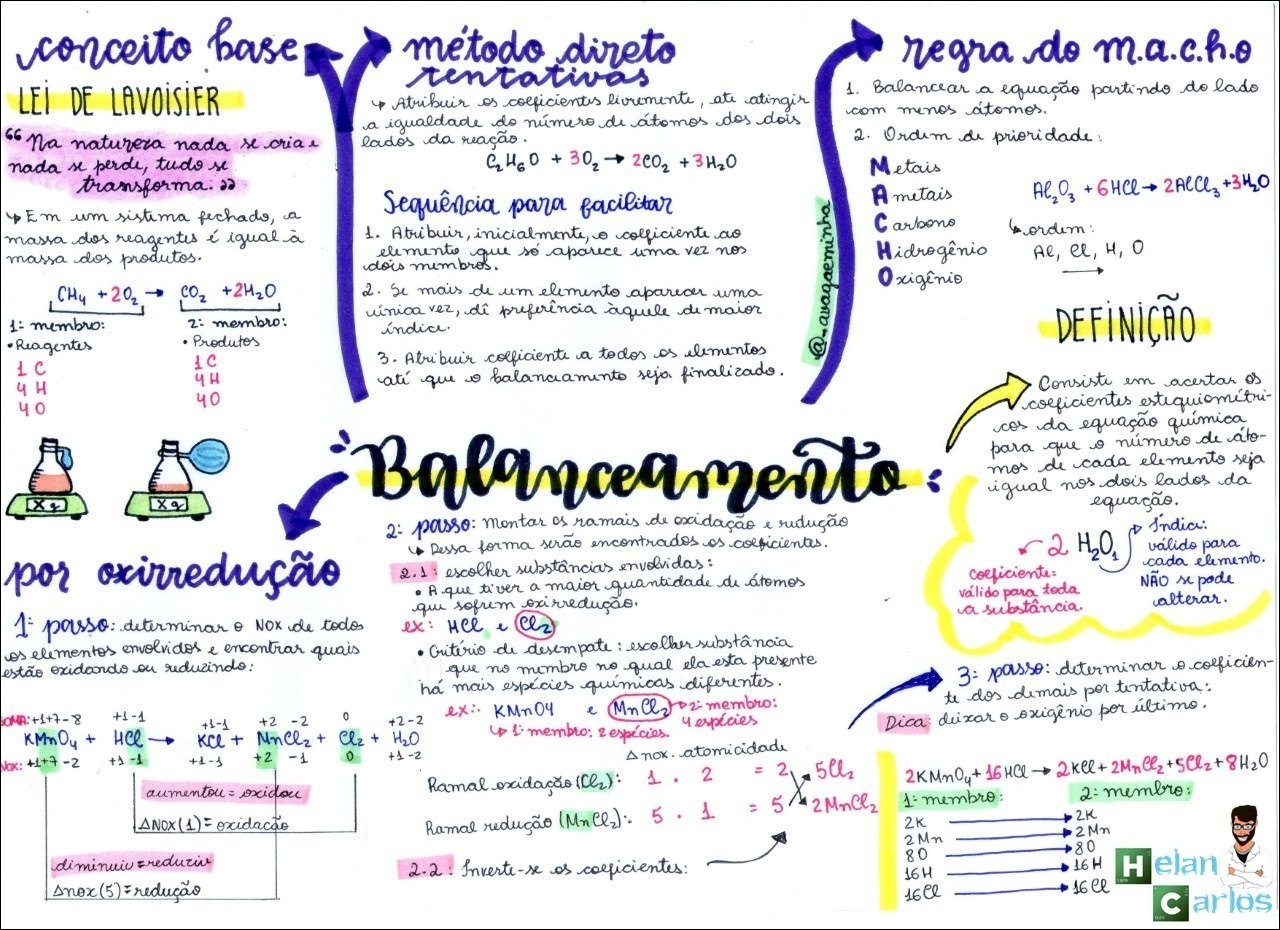 conceito base
LEI DE LAVOISIER
“Na natureza nada se cria e
nada se perde, tudo se
transforma.”
↳ Em um sistema fechado, a
massa dos reagentes é igual à
massa dos produtos.
CH₄ + 2O₂ → CO₂ + 2H₂O
1º membro:
• Reagentes
1 C
4 H
4 O
2º membro:
• Produtos
1 C
4 H
4 O
X g
X g
método direto
tentativas
↳ Atribuir os coeficientes livremente, até atingir
a igualdade do número de átomos dos dois
lados da reação.
C₂H₆O + 3O₂ → 2CO₂ + 3H₂O
Sequência para facilitar
1. Atribuir, inicialmente, o coeficiente ao
elemento que só aparece uma vez nos
dois membros.
2. Se mais de um elemento aparecer uma
única vez, dê preferência àquele de maior
índice.
3. Atribuir coeficiente a todos os elementos
até que o balanciamento seja finalizado.
@-avagaeminha
regra do m.a.c.h.o
1. Balancear a equação partindo do lado
com menos átomos.
2. Ordem de prioridade:
Metais
Ametais
Carbono
Hidrogênio
Oxigênio
Al₂O₃ + 6HCl → 2AlCl₃ + 3H₂O
↳ ordem:
Al, Cl, H, O
→
DEFINIÇÃO
Consiste em acertar os
coeficientes estequiométri-
cos da equação química
para que o número de áto-
mos de cada elemento seja
igual nos dois lados da
equação.
2 H₂O₁
Coeficiente:
válido para toda
a substância.
Índice:
válido para
cada elemento.
NÃO se pode
alterar.
Balanceamento
por oxirredução
1º passo: determinar o NOX de todos
os elementos envolvidos e encontrar quais
estão oxidando ou reduzindo:
SOMA: +1+7-8 +1-1 +1-1 +2 -2 0 +2-2
KMnO₄ + HCl → KCl + MnCl₂ + Cl₂ + H₂O
NOX: +1+7-2 +1-1 +1-1 +2 -1 0 +1-2
aumentou = oxidou
ΔNOX(1) = oxidação
diminuiu = reduziu
Δnox(5) = redução
2º passo: Montar os ramais de oxidação e redução
↳ Dessa forma serão encontrados os coeficientes.
2.1: escolher substâncias envolvidas:
• A que tiver a maior quantidade de átomos
que sofrem oxirredução.
ex: HCl e Cl₂
• Critério de desempate: escolher substância
que no membro no qual ela esta presente
há mais espécies químicas diferentes.
ex: KMnO4 e MnCl₂ → 2º membro:
4 espécies
↳ 1º membro: 2 espécies.
Δnox. atomicidade
Ramal oxidação (Cl₂): 1 . 2 = 2 5Cl₂
Ramal redução (MnCl₂): 5 . 1 = 5 2MnCl₂
2.2: Inverte-se os coeficientes:
3º passo: determinar o coeficien-
te dos demais por tentativa:
Dica: deixar o oxigênio por último.
2KMnO₄ + 16HCl → 2KCl + 2MnCl₂ + 5Cl₂ + 8H₂O
1º membro: 2º membro:
2K → 2K
2Mn → 2Mn
8O → 8O
16H → 16H
16Cl → 16Cl
Helan
Carlos